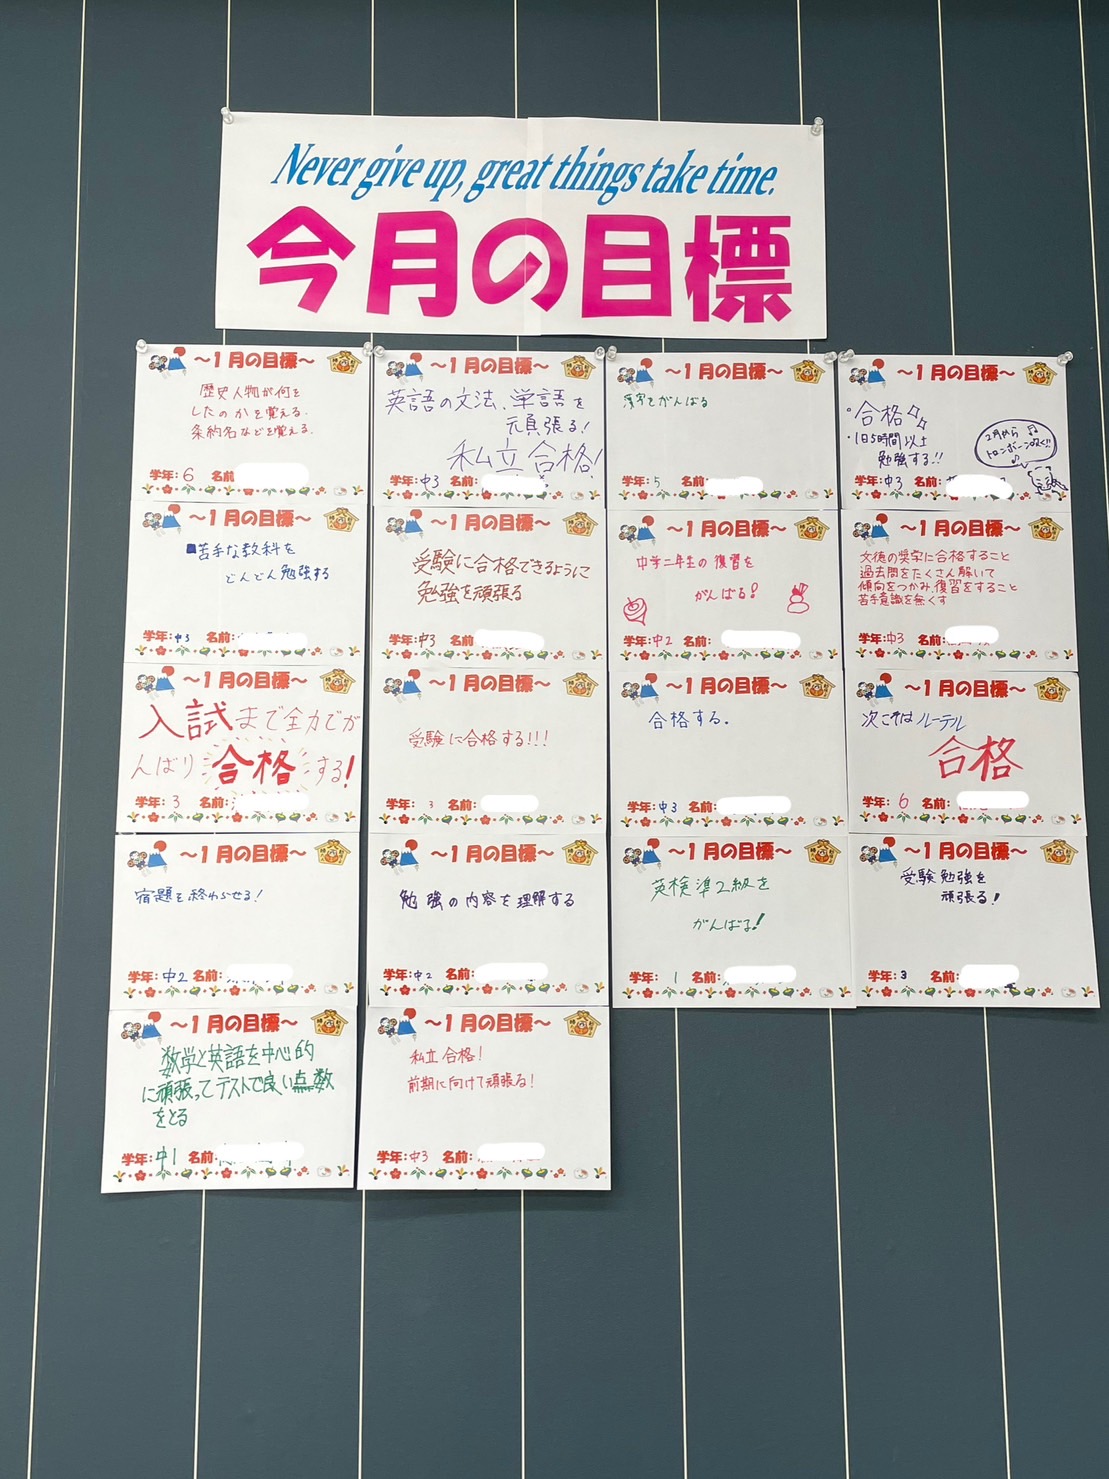 Never give up, great things take time.
今月の目標
～1月の目標～
歴史人物が何を
したのかを覚える.
条約名などを覚える.
学年: 6 名前
～1月の目標～
英語の文法、単語を
頑張る!
私立合格!
学年: 中3 名前:
～1月の目標～
漢字をがんばる
学年: 5 名前:
～1月の目標～
・合格
・1日5時間以上
勉強する!!
2月から
トロンボーン吹く!!
学年: 中3 名前:
～1月の目標～
苦手な教科を
どんどん勉強する
学年: 中3 名前:
～1月の目標～
受験に合格できるように
勉強を頑張る
学年: 中3 名前:
～1月の目標～
中学二年生の復習を
がんばる!
学年: 中2 名前:
～1月の目標～
文徳の奨学に合格すること
過去問をたくさん解いて
傾向をつかみ、復習をすること
苦手意識を無くす
学年: 中3 名前:
～1月の目標～
入試まで全力でが
んばり合格する!
学年: 3 名前:
～1月の目標～
受験に合格する!!!
学年: 3 名前:
～1月の目標～
合格する.
学年: 中3 名前:
～1月の目標～
次こそはルーテル
合格
学年: 6 名前:
～1月の目標～
宿題を終わらせる!
学年: 中2 名前:
～1月の目標～
勉強の内容を理解する
学年: 中2 名前:
～1月の目標～
英検準2級を
がんばる!
学年: 1 名前:
～1月の目標～
受験勉強を
頑張る!
学年: 3 名前:
～1月の目標～
数学と英語を中心的
に頑張ってテストで良い点数
をとる
学年: 中1 名前:
～1月の目標～
私立合格!
前期に向けて頑張る!
学年: 中3 名前: